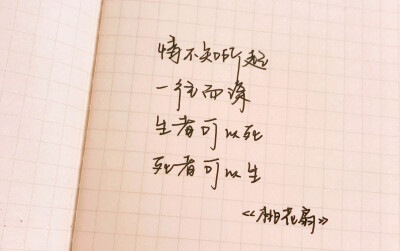 情不知所起
一往而深
生者可以死
死者可以生
《桃花扇》